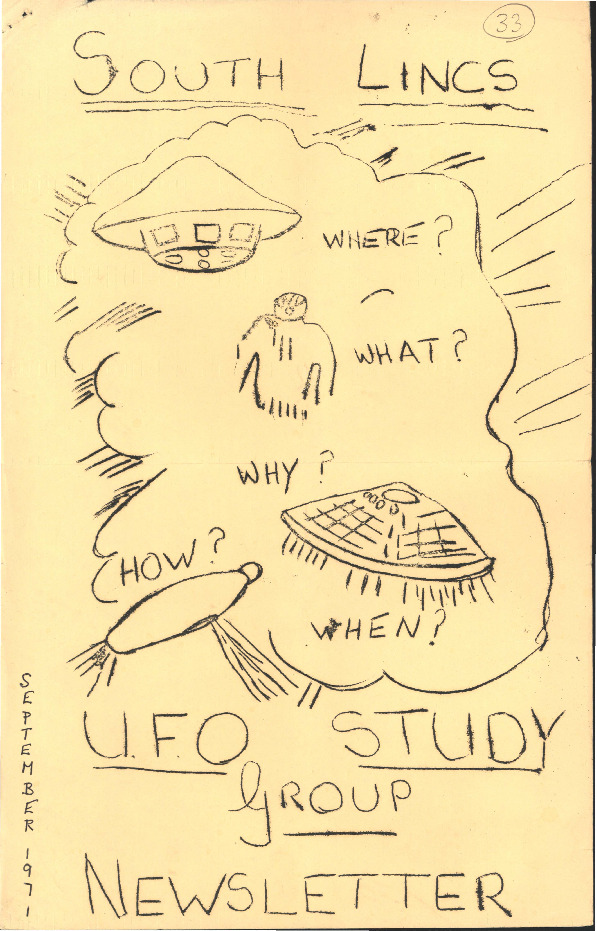 33
SOUTH LINCS
WHERE?
WHAT?
WHY?
HOW?
WHEN?
U.F.O STUDY
GROUP
NEWSLETTER
SEPTEMBER 1971